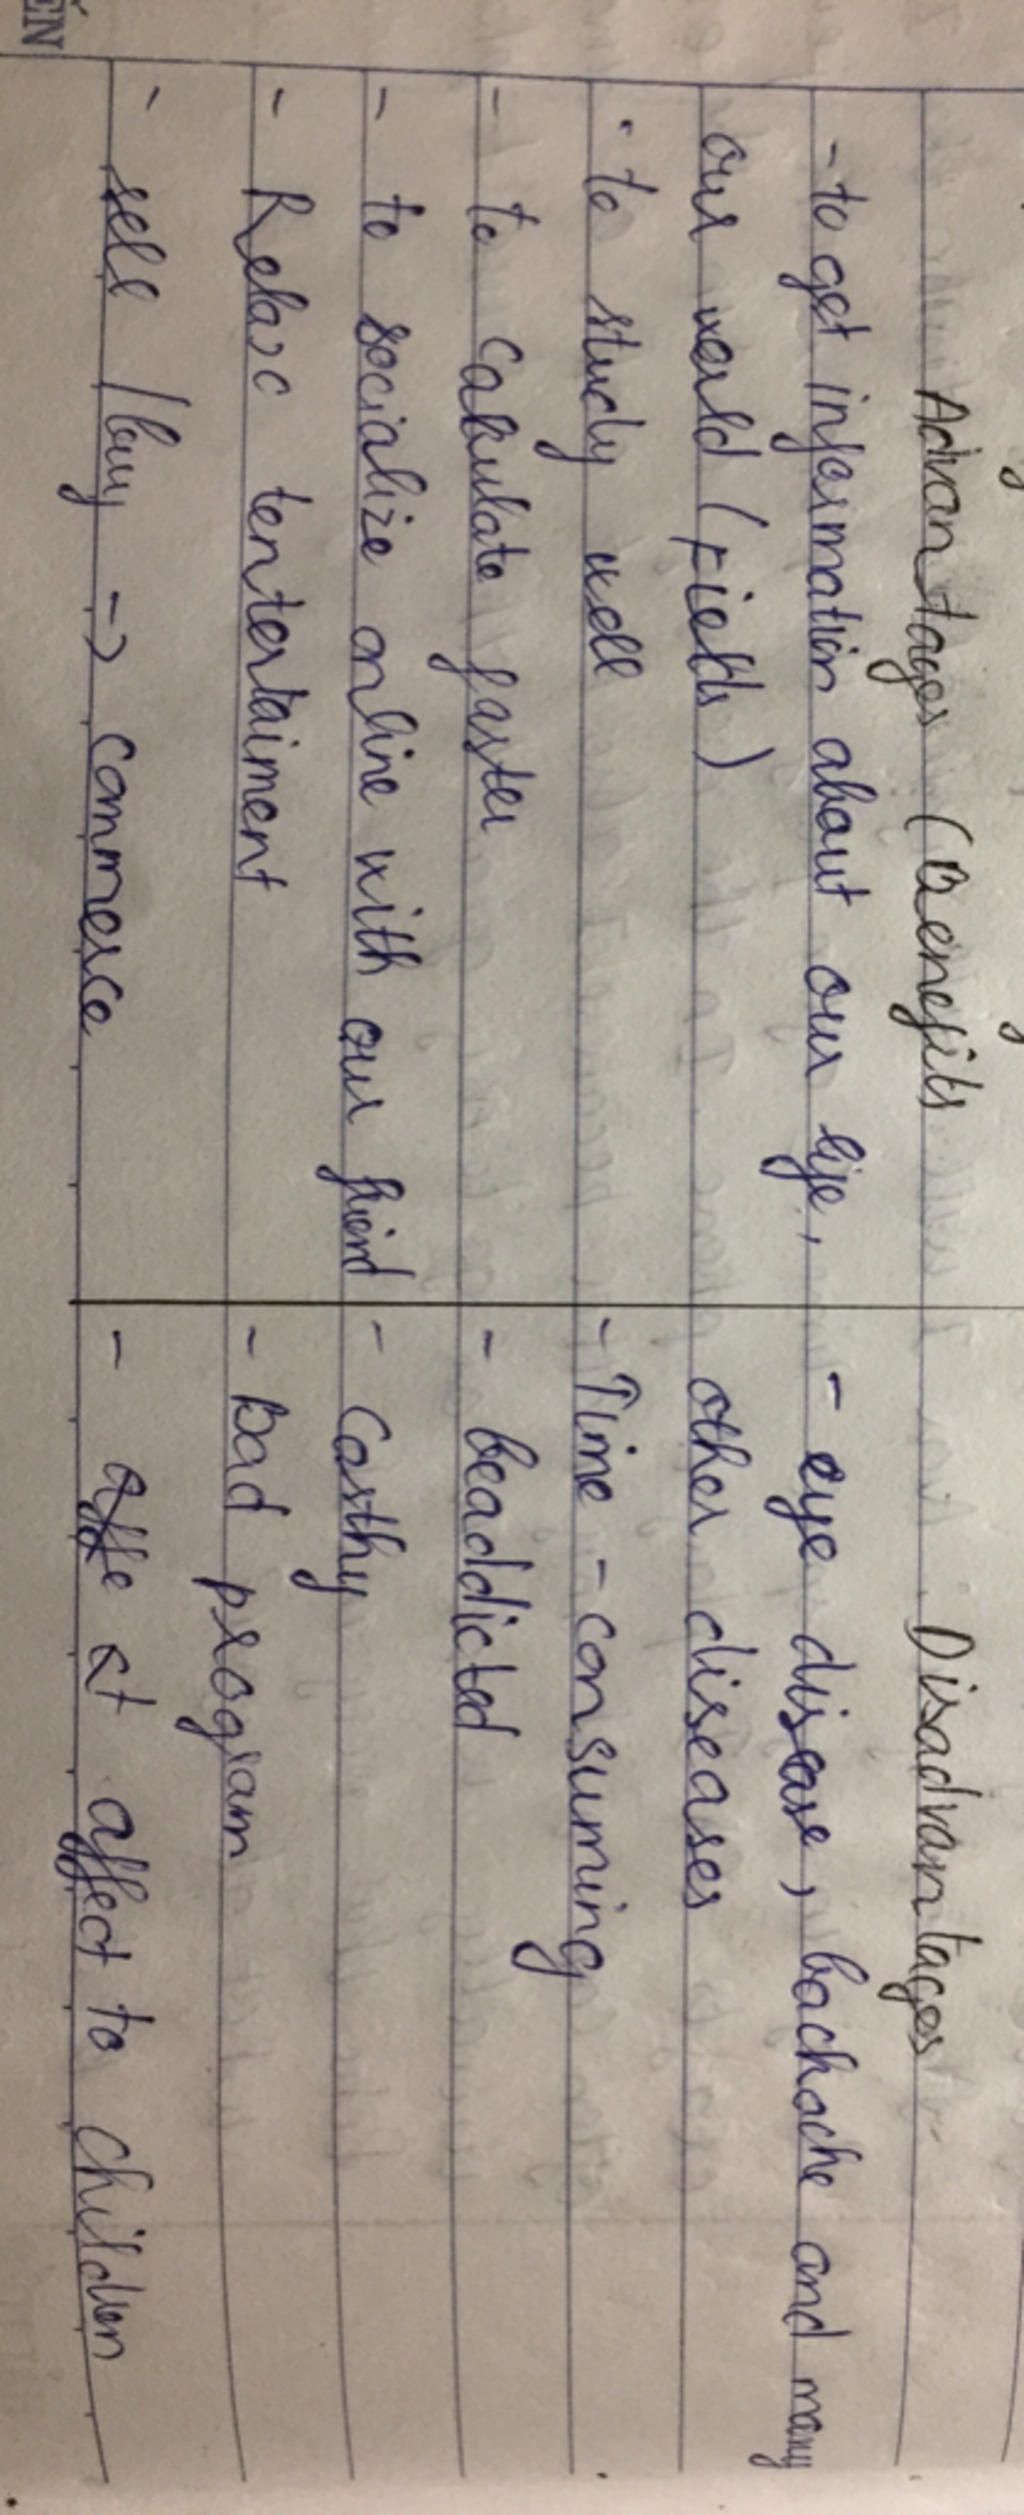 Advantages (Benefits
Disadvantages
- to get information about our life,
our world (fields)
- to study well
- to calculate faster
- to socialize online with our friend
- Relax tentertaiment
- sell / buy -> commerce
- eye disease, backache and many
other diseases
- Time - consuming
- beaddicted
- Costhy
- bad program
- affe at affect to children
ẾN